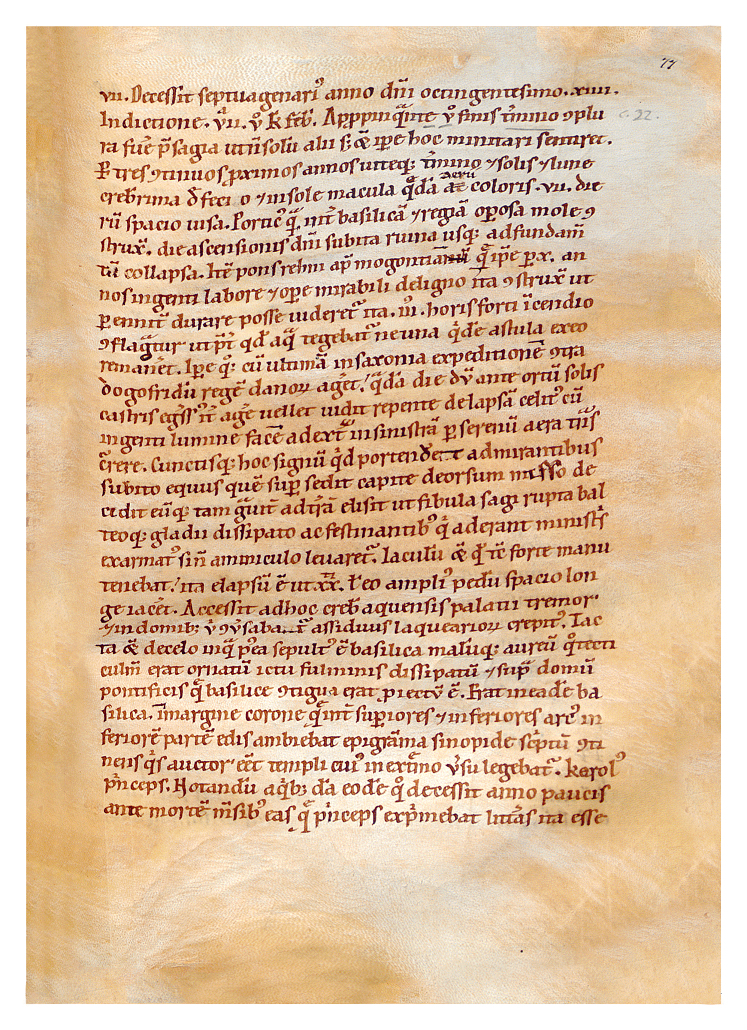 77
vii. Decessit septuagenari᾿ anno dn̄i octingentesimo. xiiii.
Indictione. vii. v̊ k̄ feb̄. Apꝓpinq̄nte v̊ finis t̄mino ꝯplu
c. 22.
ra fuē p̄sagia ut n̄ solū alii s; & ip̄e hoc minitari sentiret.
Ꝑ tres ꝯtinuos ꝓximos annos uiteq; t̄mino ⁊ solis ⁊ lune
aerū
creb̄rima defeci o ⁊ in sole macula q̄dā at coloris. vii. die
rū spacio uisa. Portic᾿ q̄ int̄ basilicā ⁊ regiā oꝑosa mole ꝯ
strux̄. die ascensionis dn̄i subita ruina usq; ad fundam̄
tū collapsa. Itē pons reh̄ni ap̄ mogontiam q̄ ip̄e ꝑ x. an
nos ingenti labore ⁊ oꝑe mirabili de ligno ita ꝯstrux̄ ut
ꝑennit̄ durare posse uideret̄ ita. iii. horis forti ī cendio
ꝯflaḡtur ut p̄t qd̄ aq̄ tegebat̄ ne una q̄dē astula exeo
remanet̄. Ipe q; cū ultimā in saxonia expeditionē ꝯtra
dogofridū regē danoꝝ aget̄. q̄dā die dū ante ortū solis
castris eḡss᾿ it̄ age uellet uidit repente delapsā celit᾿ cū
ingenti lumine facē a dext̄ in sinistrā ꝑ serenū aera t̄ns
c̄rere. Cunctisq; hoc signū q̄d portenderet admirantibus
subito equus quē sup̄ sedit capite deorsum misso de
cidit eūq; tam g̊uit̄ ad t̄rā elisit ut fibula sagi rupta bal
teoq; gladii dissipato ac festinantib᾿ q̄ aderant minist̄s
exarmat᾿ sin̄ amniculo leuaret̄. Iaculū & q̊ tē forte manu
tenebat. ita elapsū ē ut xx. l᾿ eo ampli᾿ pedū spacio lon
ge iacet̄. Accessit ad hoc creb̄ aquensis palatii tremor
⁊ in domib; v̊ ꝯv̊saba t̄ assiduus laqueariorꝝ crepit᾿. Tac
ta & de celo in q̄ p᾿ea sepult᾿ ē basilica maluq; aureū q̊ tecti
culm̄ erat ornatū ictu fulminis dissipatū ⁊ sup̄ domū
pontificis q̄ basilice ꝯtigua erat ꝓiectū ē. Erat in eadē ba
silica. in margine corone q̄ int̄ suꝑiores ⁊ inferiores arc᾿ in
feriorē partē edis ambiebat epigrāma sinopide sc̄ptū ꝯti
nens q̄s auctor eēt templi cui᾿ in ext̄mo v̊su legebat̄. karol᾿
p̄nceps. Notandū a q̄b; dā eodē q̊ decessit anno paucis
ante mortē m̄sib᾿ eas q̄ p̄nceps exp̄mebat litt̄as ita esse